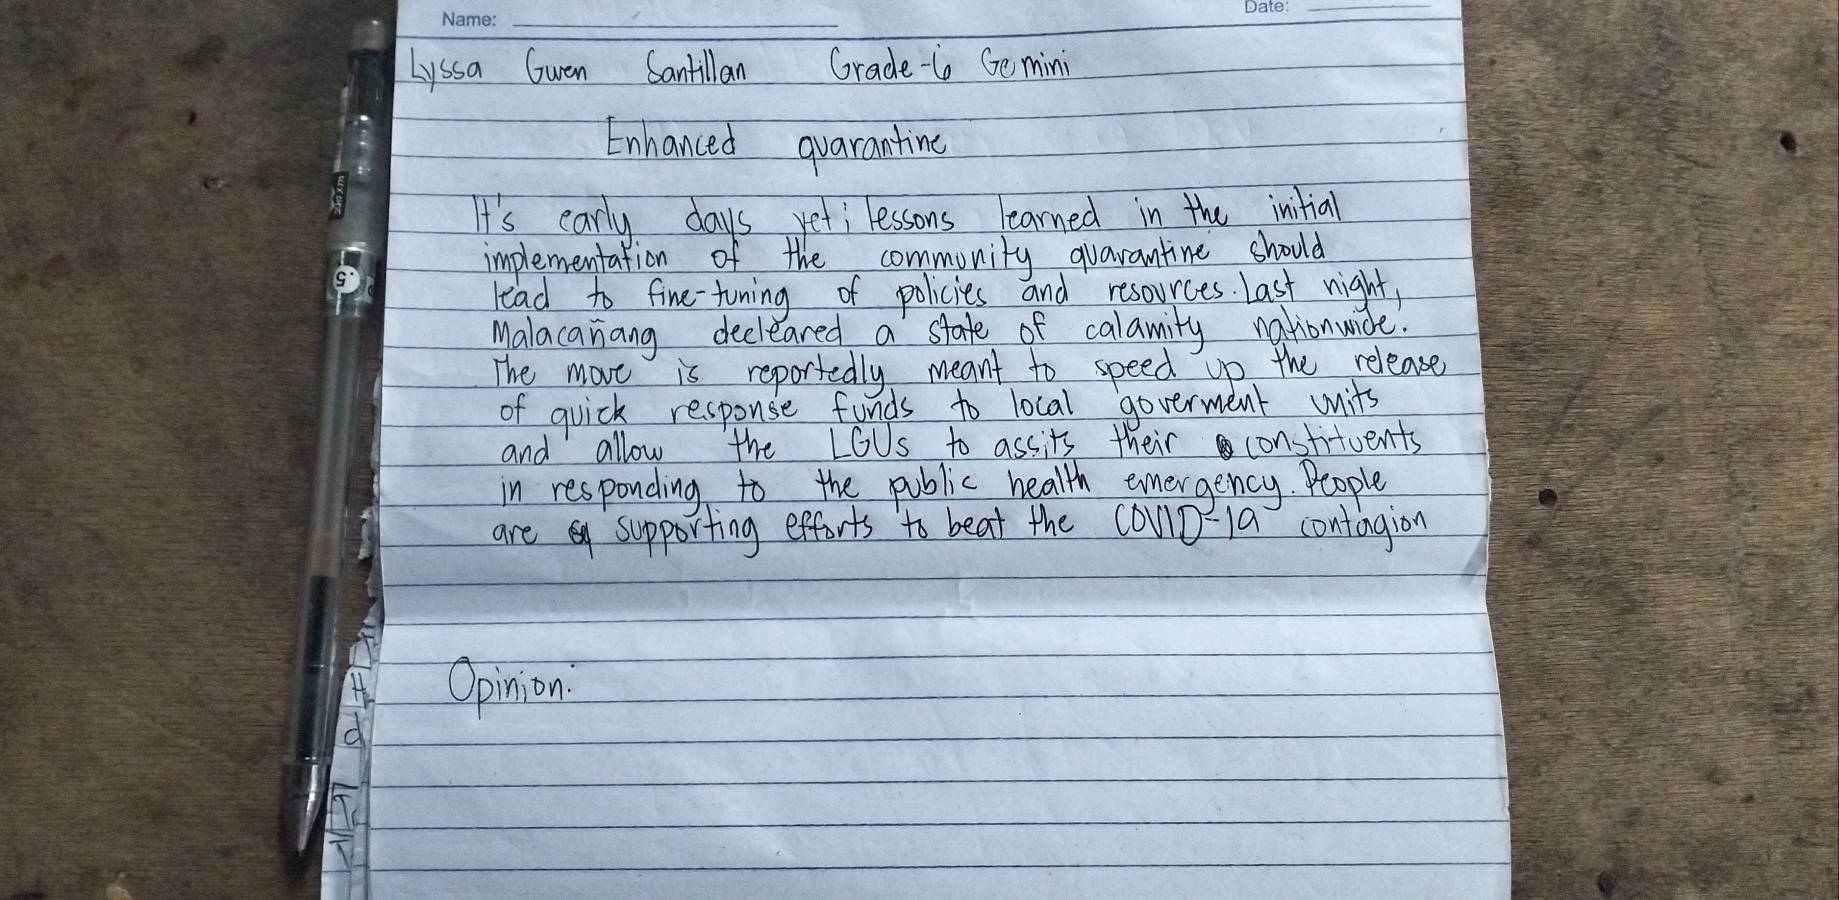 Name:
Date:
Lyssa Gwen Santillan Grade-6 Gemini
Enhanced quarantine
It's early days yet; lessons learned in the initial
implementation of the community quarantine should
lead to fine-tuning of policies and resources. Last night,
Malacañang decleared a state of calamity nationwide.
The move is reportedly meant to speed up the release
of quick response funds to local goverment units
and allow the LGUs to assits their constituents
in responding to the public health emergency. People
are supporting efforts to beat the COVID-19 contagion
Opinion:
.5